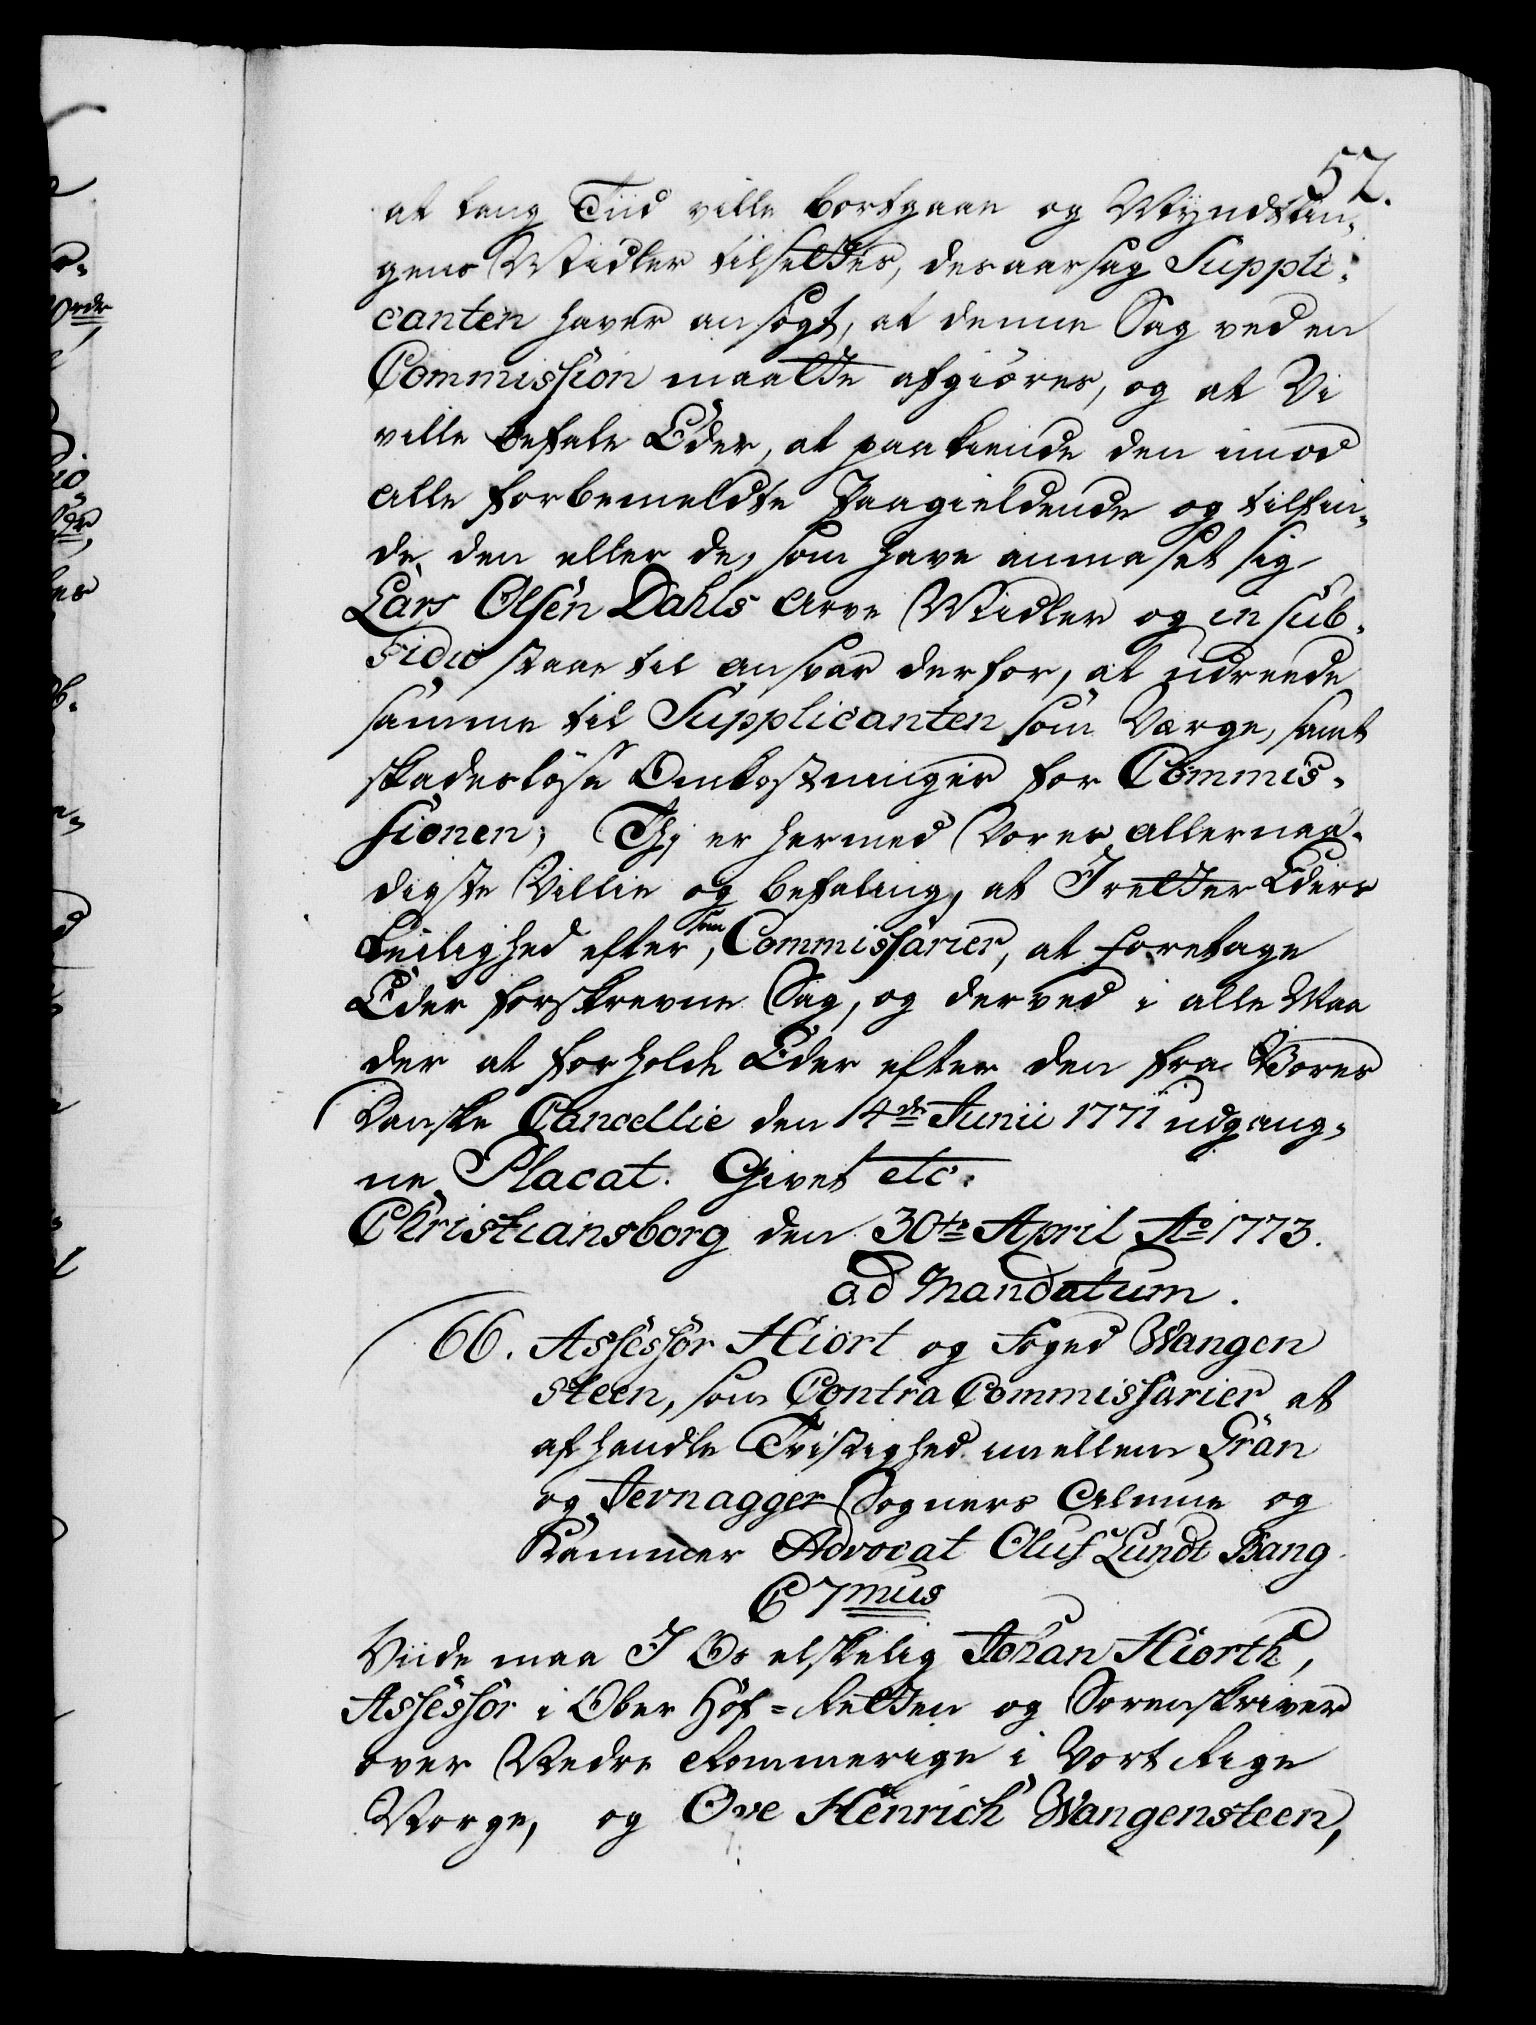 57.
at lang Tiid ville bortgaae og Myndtlin-
gens Midler tilsættes, desaarsag Suppli-
canten haver ansøgt, at denne Sag ved en
Commission maatte afgiöres, og at Vi
ville befale Eder, at paakiende den imod
alle forbemeldte Paagieldende og tilfin-
de den eller de, som have anmaset sig
Lars Olsen Dahls Arve Midler og in sub-
sidio staae til ansvar derfor, at udreede
samme til Supplicanten som Værge, samt
skadeslöse Omkostninger for Commis-
sionen; Thj er hermed Vores allernaa-
digste Villie og befaling, at I retter Eders
Leilighed efter, som Commissarier, at foretage
Eder forskrevne Sag, og derved i alle Maa
der at forholde Eder efter den fra Vores
Danske Cancellie den 14de Junii 1771 udgang-
ne Placat. Givet etc:
Christiansborg den 30te April Ao 1773.
ad Mandatum.
66. Assessor Hiort og Foged Wangen
steen, som Contra Commissarier at
afhandle Tvistighed imellem Gran
og Jevnagger Sogners Almue og
Kammer Advocat Oluf Lundt Bang.
C 7mus
Viide maa I Os elskelig Johan Hiorth,
Assessor i Ober Hof-Retten og Sorenskriver
over Nedre Rommerige i Vort Rige
Norge, og Ove Henrich Wangensteen,